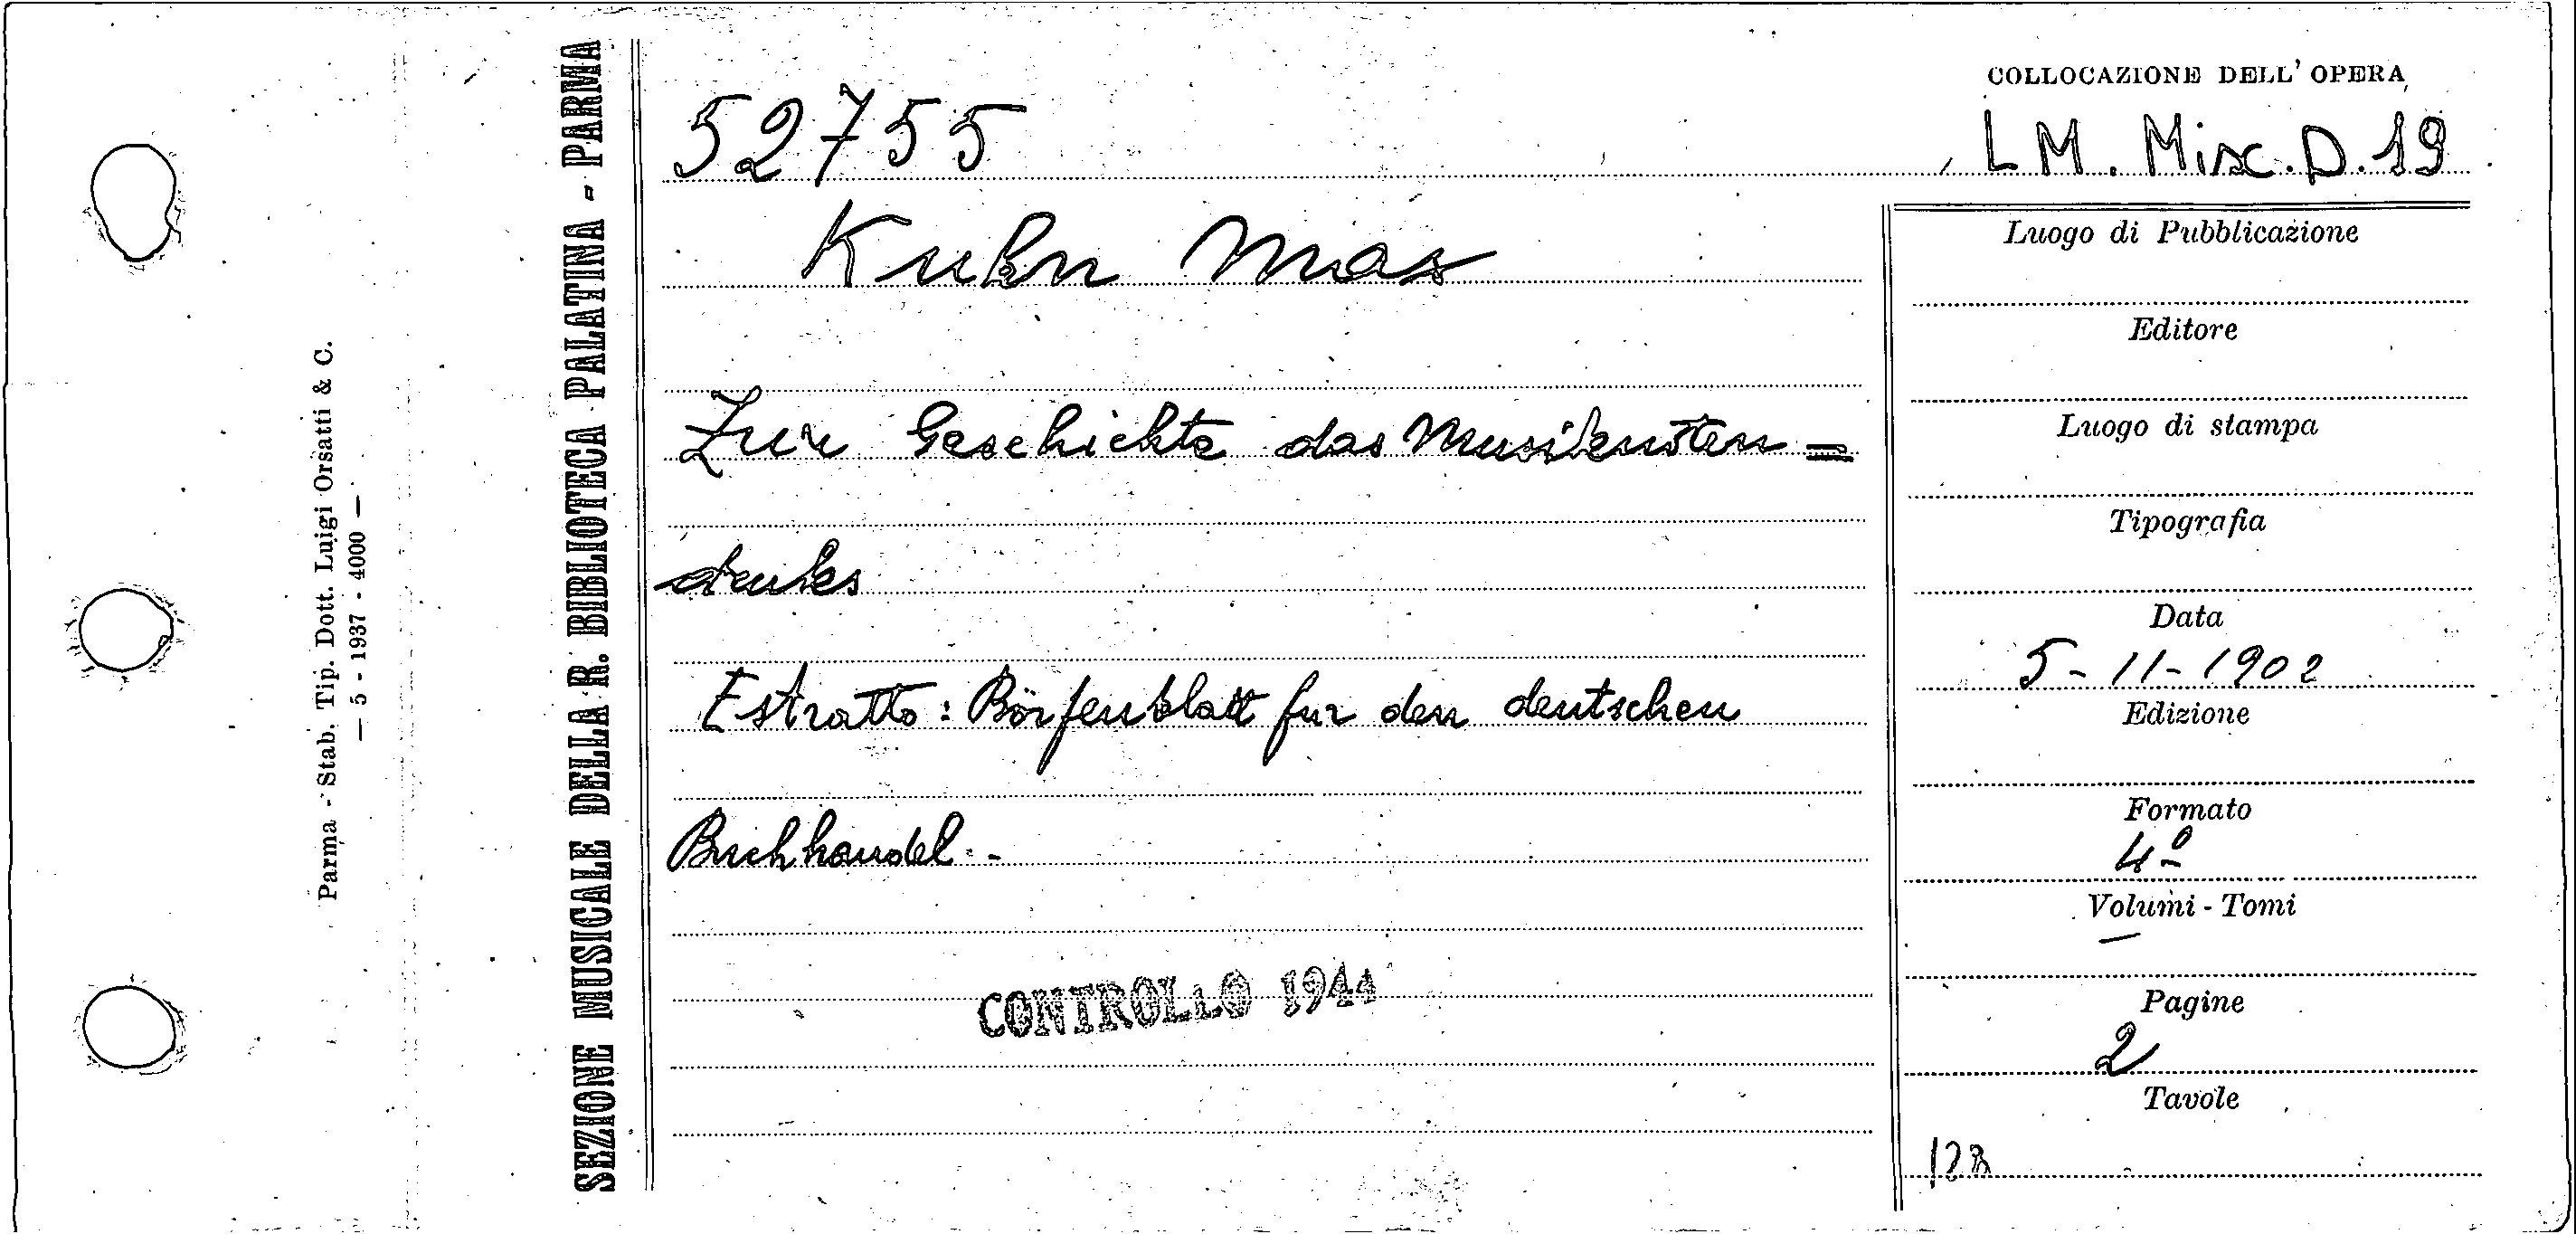 Parma - Stab. Tip. Dott. Luigi Orsatti & C.
— 5 - 1937 - 4000 —
SEZIONE MUSICALE DELLA R. BIBLIOTECA PALATINA - PARMA
52755
COLLOCAZIONE DELL' OPERA
LM. Misc. D. 19
Kuhn Max
Zur Geschichte das Musiknoten=
drukes
Estratto: Börfenblatt fur den deutschen
Buchhandel.-
CONTROLLO 1944
Luogo di Pubblicazione
Editore
Luogo di stampa
Tipografia
Data
5-11-1902
Edizione
Formato
4º
Volumi - Tomi
—
Pagine
2
Tavole